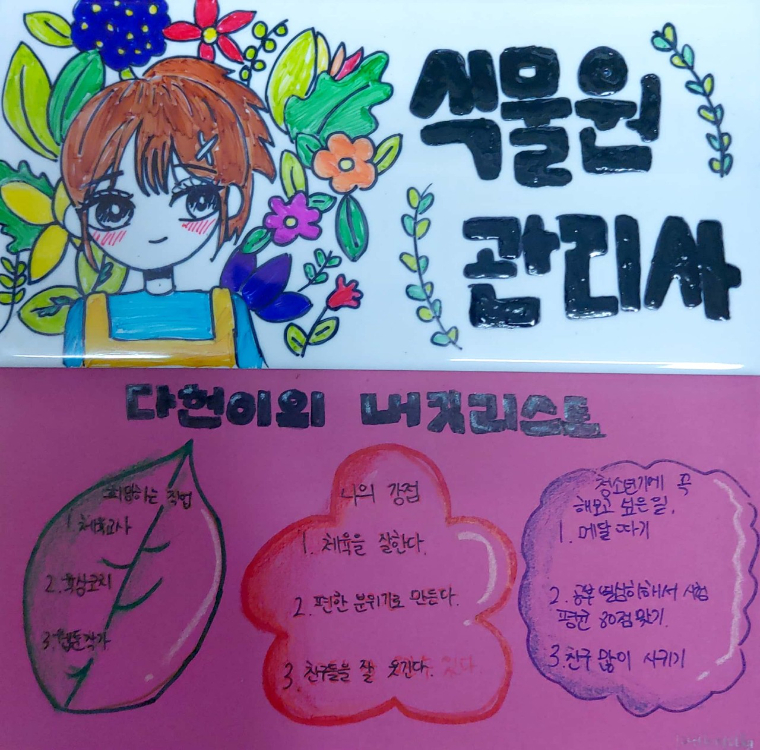 식물원
관리사
다현이의 버킷리스트
희망하는 직업
1. 체육교사
2. 육상코치
3. 웹툰작가
나의 강점
1. 체육을 잘한다.
2. 편한 분위기로 만든다.
3. 친구들을 잘 웃긴다.
청소년기에 꼭
해보고 싶은일.
1. 메달 따기
2. 공부 열심히해서 시험
평균 80점 맞기.
3. 친구 많이 사귀기